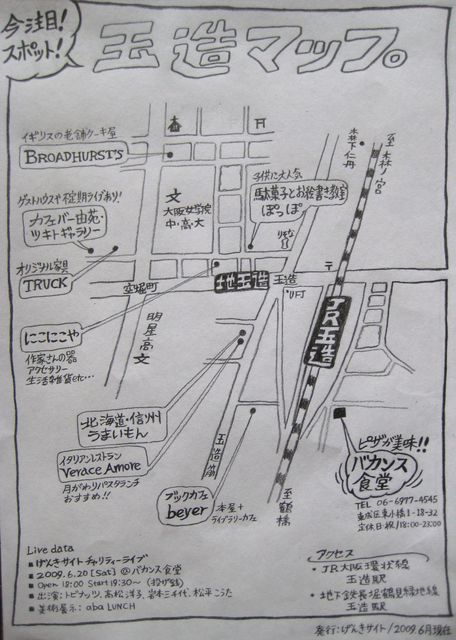 今注目!
スポット!
玉造マップ。
イギリスの老舗ケーキ屋
BROADHURST'S
ゲストハウスや定期ライブあり!
カフェバー由苑・
ツキトギャラリー
オリジナル家具
TRUCK
空堀町
文
大阪女学院
中・高・大
子供に大人気
駄菓子とお絵書き教室
ぽっぽ
りそな
森下仁丹
至森ノ宮
地玉造
玉造
〒
UFJ
JR玉造
にこにこや
作家さんの器
アクセサリー
生活雑貨etc…
明星高
文
北海道・信州
うまいもん
イタリアンレストラン
Verace Amore
月がわりパスタランチ
おすすめ!!
玉造筋
ブックカフェ
beyer
本屋+
ライブラリーカフェ
至鶴橋
ピザが美味!!
バカンス
食堂
TEL 06-6977-4545
東成区東小橋1-18-32
定休日・祝/18:00-23:00
Live data
■げんきサイト チャリティーライブ
■2009.6.20 [Sat] @バカンス食堂
■Open 18:00 Start 19:30~
■出演:トビナッツ、高松洋子、岩本三千代、松平こうた
■美術展示:aba LUNCH
アクセス
・JR大阪環状線
玉造駅
・地下鉄長堀鶴見緑地線
玉造駅
発行:げんきサイト/2009.6月現在